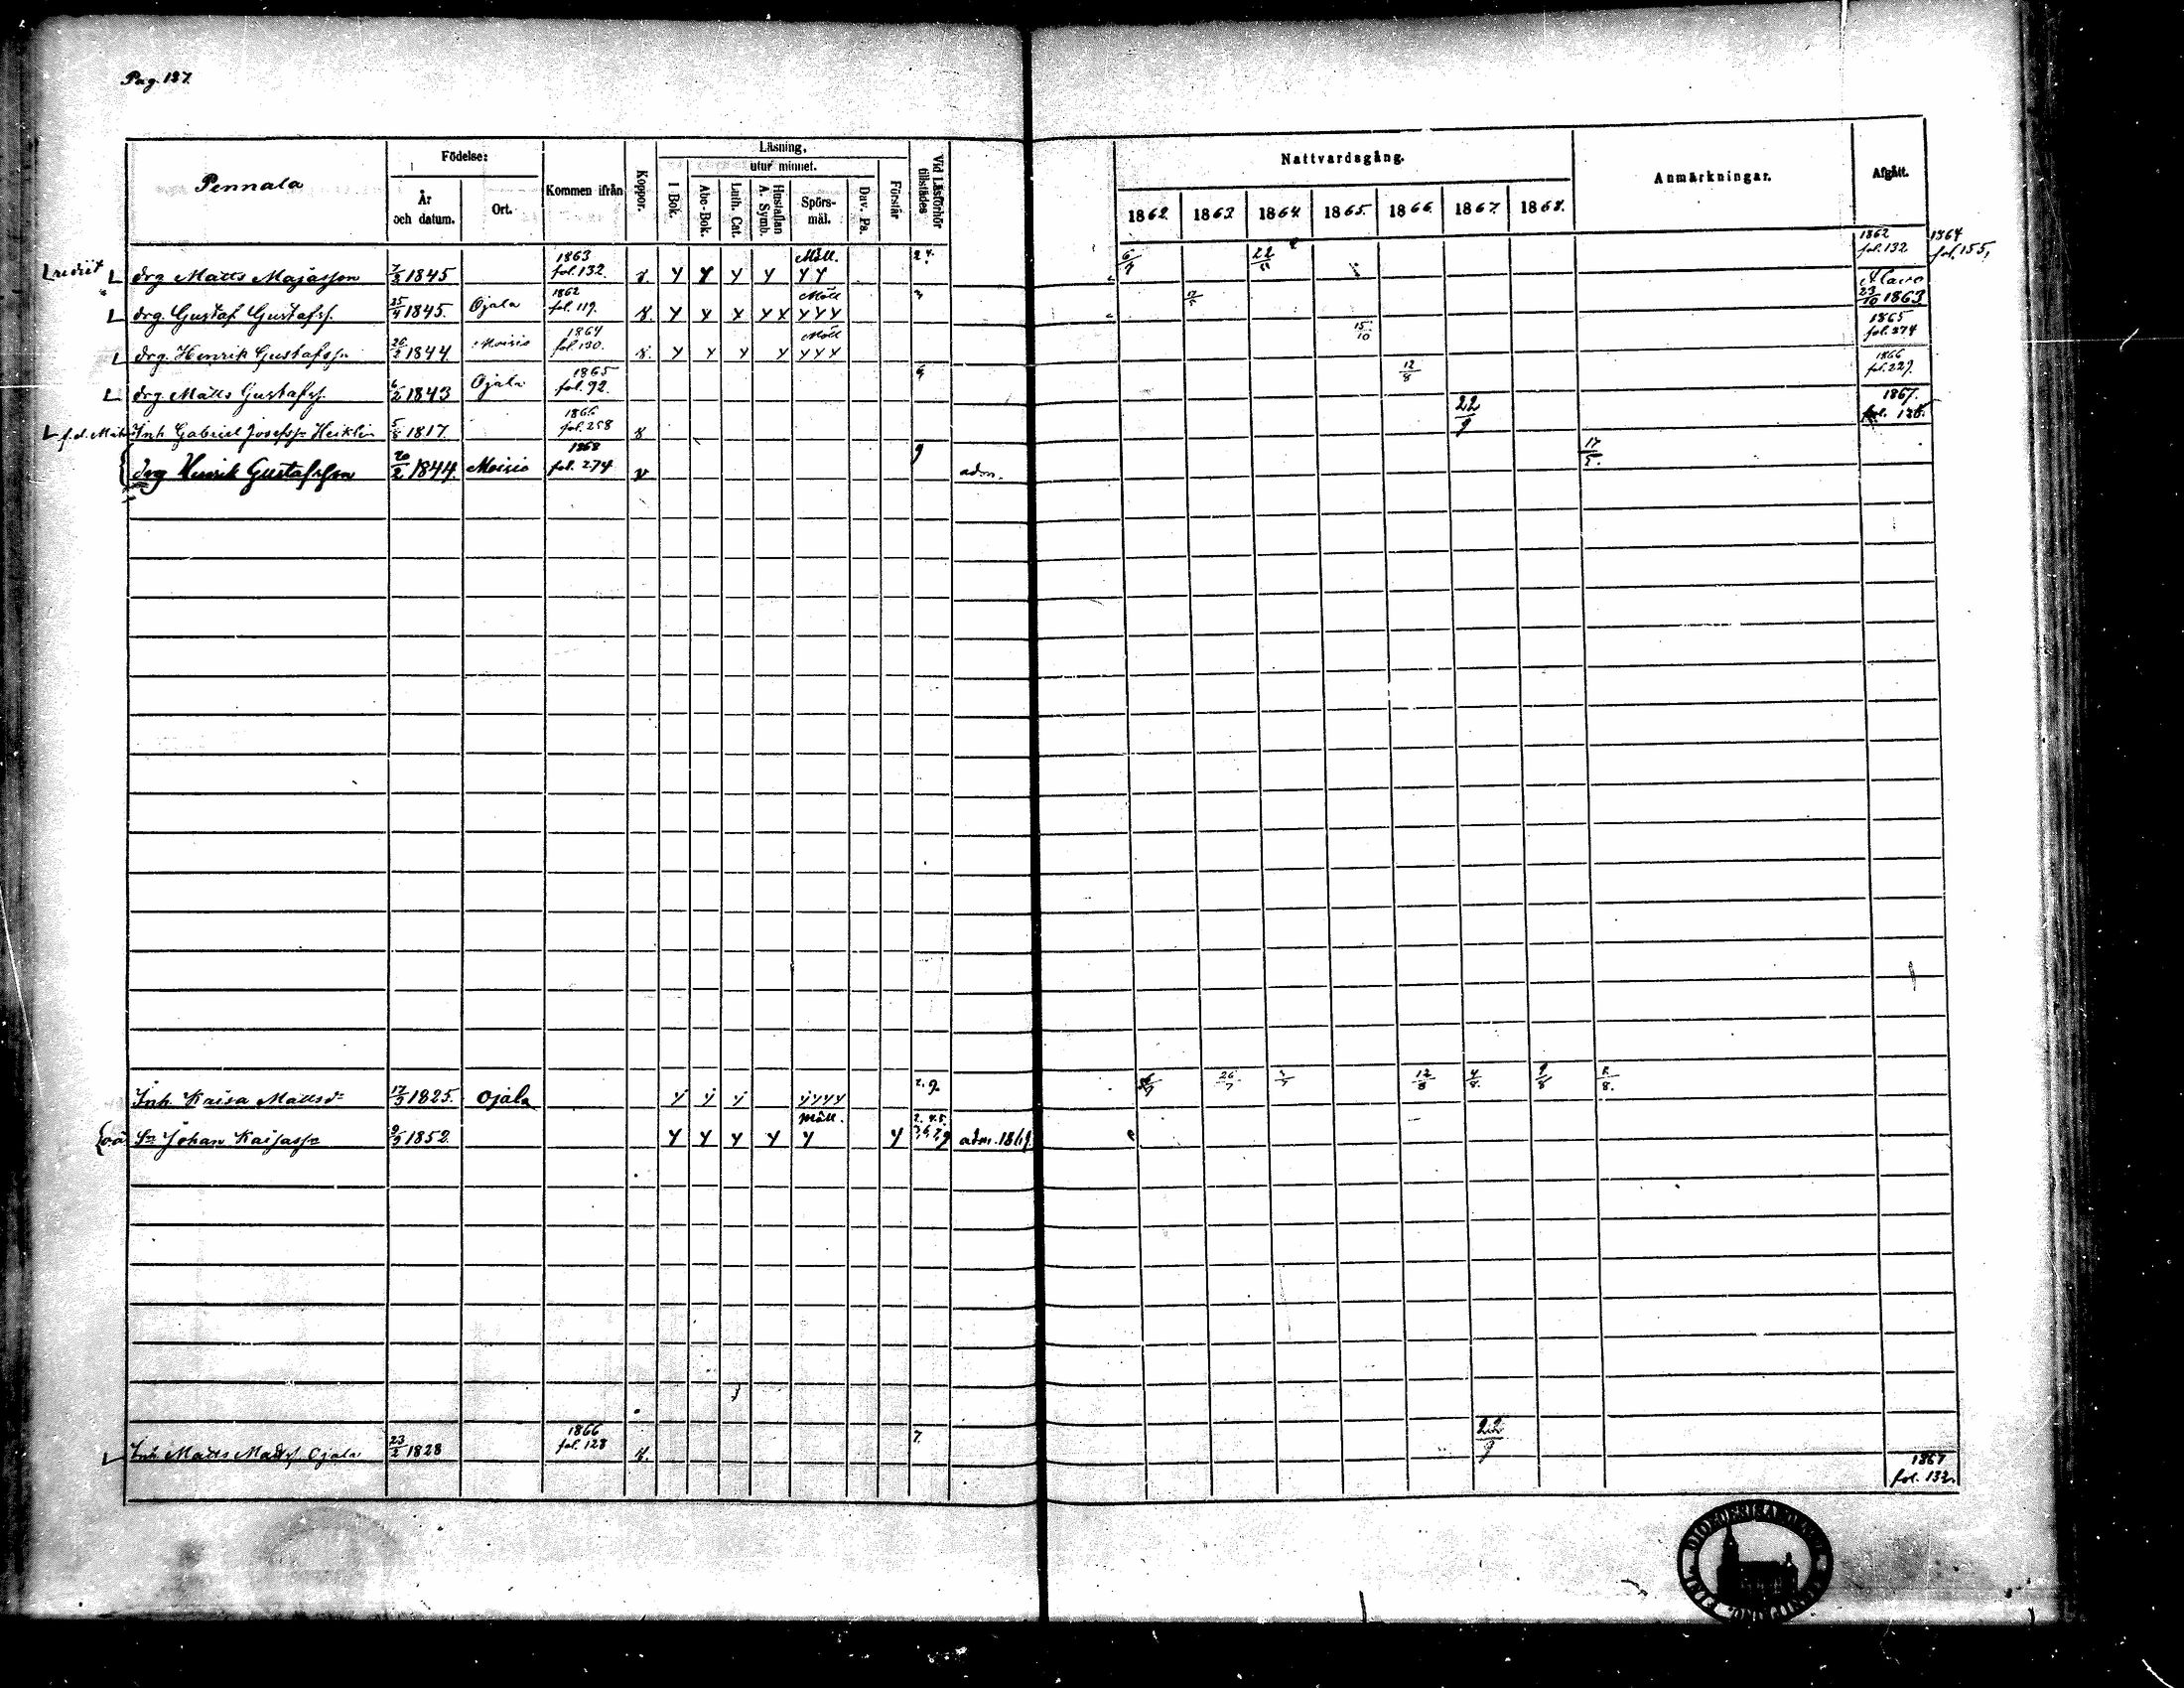 Pag. 137.
Pennala
Födelse:
År och datum.
Ort.
Kommen ifrån
Koppor.
Läsning,
I Bok.
utur minnet.
Abc-Bok.
Luth. Cat.
Hustaflan A. Symb.
Spörsmål.
Dav. Ps.
Förstår
Vid Läsförhör tillstädes
Nattvardsgång.
1862. 1863. 1864. 1865. 1866. 1867. 1868.
Anmärkningar.
Afgått.
rediit drg Matts Majasson 7/3 1845 1863 fol. 132. Möll. 2 4. 6/7 1862 fol. 132 1864 fol. 155,
drg. Gustaf Gustafss. 25/4 1845. Ojala 1862 fol. 119. Möll 3 23/10 1863
drg. Henrik Gustafss. 26/2 1844 Moisio 1864 fol. 130. Möll 15/10 1865 fol. 274
drg. Matts Gustafss. 6/2 1843 Ojala 1865 fol. 92. 12/8 1866 fol. 227.
Inh Gabriel Josefss. Heiklin 5/8 1817. 1866 fol. 258 22/9 1867.
drg Henrik Gustafsson 26/2 1844. Moisio 1868 fol. 274 9 adm. 17/5.
Inh. Kaisa Mattsdr 17/3 1825. Ojala 2. 9. 26/7 12/8 4/8. 9/8 8/8.
Sn Johan Kaisass. 9/9 1852. Möll. adm. 1869.
Inh Matts Mattss. Ojala 23/2 1828 1866 fol. 128 7. 22/9 1867 fol. 132.